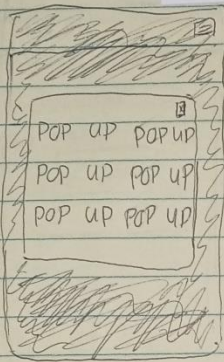 POP UP POP UP
POP UP POP UP
POP UP POP UP